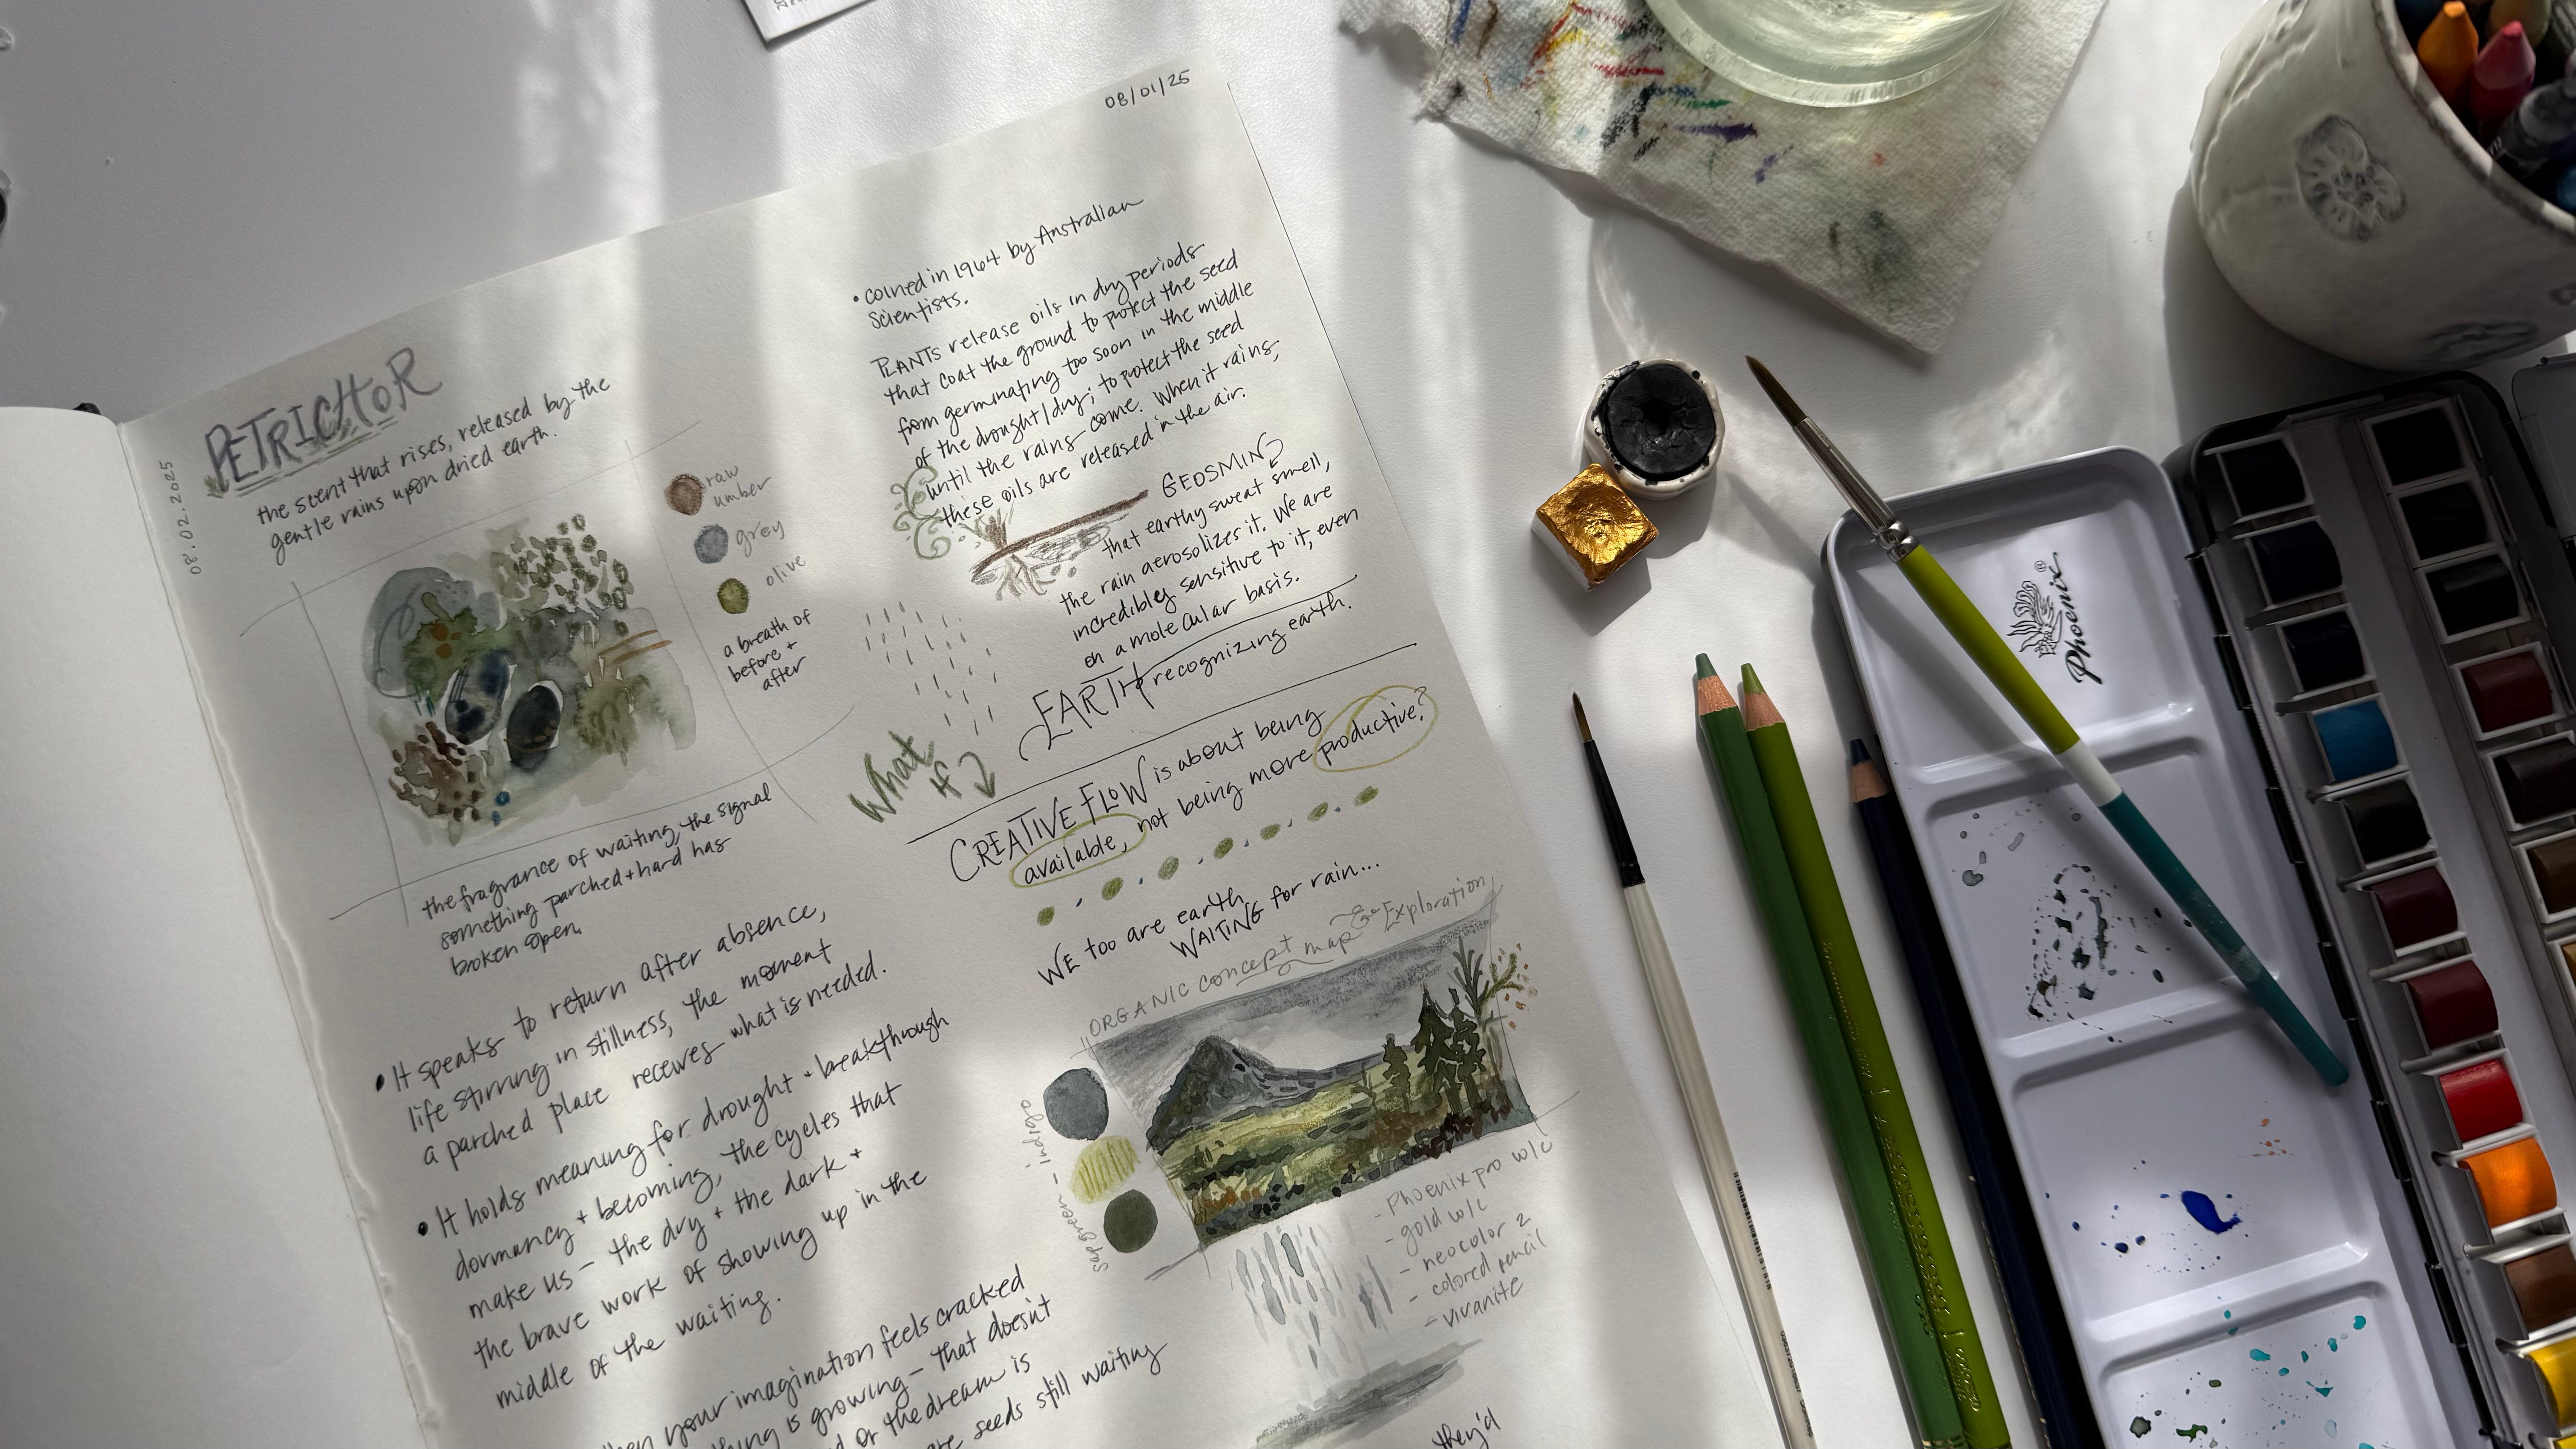 08/01/25
08.02.2025
PETRICHOR
the scent that rises, released by the
gentle rains upon dried earth.
raw
umber
grey
olive
a breath of
before +
after
the fragrance of waiting, the signal
something parched + hard has
broken open.
• It speaks to return after absence,
life stirring in stillness, the moment
a parched place receives what is needed.
• It holds meaning for drought + breakthrough
dormancy + becoming, the cycles that
make us - the dry + the dark +
the brave work of showing up in the
middle of the waiting.
your imagination feels cracked
is growing - that doesn't
or the dream is
seeds still waiting
• coined in 1964 by Australian
Scientists.
PLANTS release oils in dry periods
that coat the ground to protect the seed
from germinating too soon in the middle
of the drought/dry; to protect the seed
until the rains come. When it rains,
these oils are released in the air.
GEOSMIN
that earthy sweat smell,
the rain aerosolizes it. We are
incredibly sensitive to it, even
on a molecular basis.
EARTH recognizing earth.
What
If
CREATIVE FLOW is about being
available, not being more productive?
WE too are earth
WAITING for rain...
ORGANIC concept map & Exploration
indigo
sap green
- Phoenix pro w/c
- gold w/c
- neocolor 2
- colored pencil
- vivanite
they'd
Phoenix®